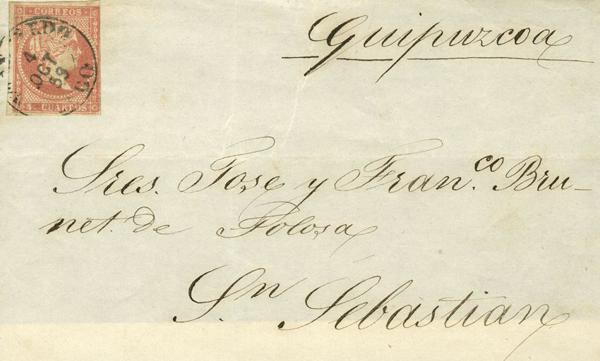 CORREOS
4 OCT 59
CUARTOS
Guipuzcoa
Sres. Jose y Fran.co Bru-
net. de Tolosa
Sn Sebastian